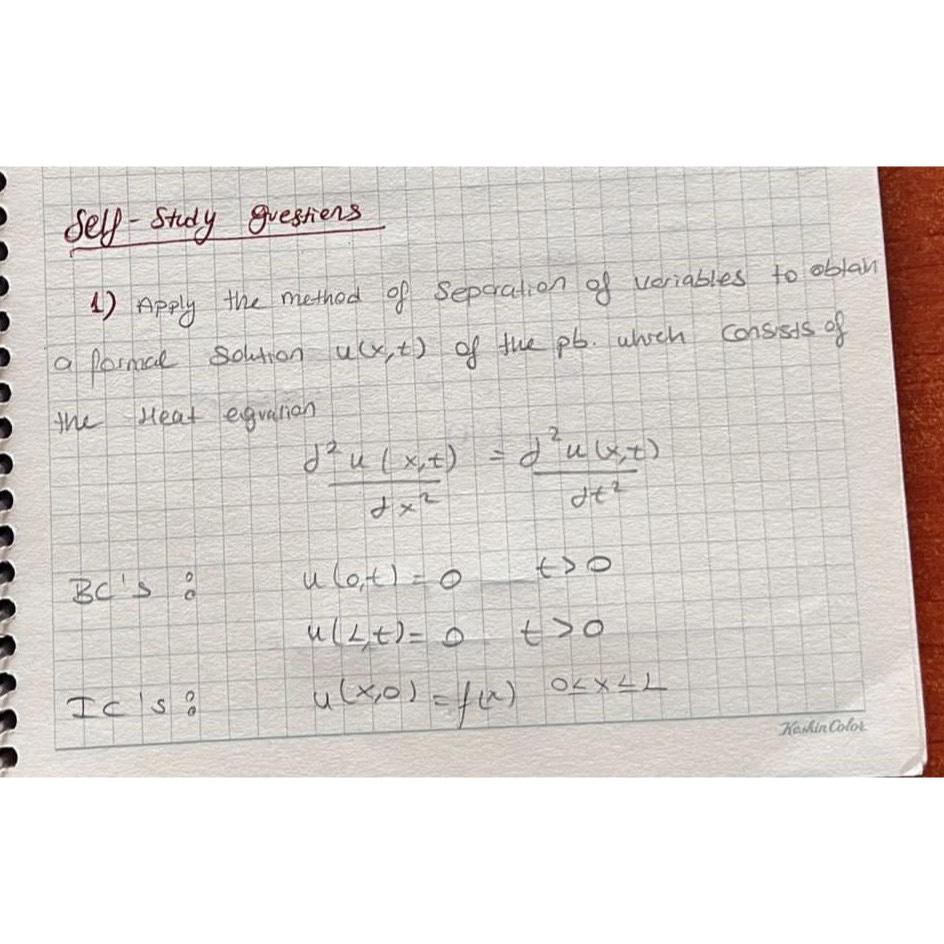 Self-Study questions
1) Apply the method of Separation of variables to obtain
a formal solution u(x,t) of the pb. which consists of
the Heat equation
∂²u(x,t)/∂x² = ∂²u(x,t)/∂t²
BC's : u(0,t) = 0 t>0
u(L,t) = 0 t>0
IC's : u(x,0) = f(x) 0<x<L
KeskinColor